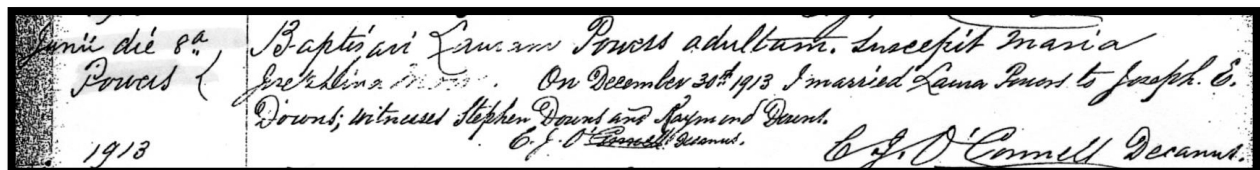 Junii die 8a. Baptisavi Lauram Powers adultam. Suscepit Maria
Powers { On December 30th 1913 I married Laura Powers to Joseph. E.
Downs; witnesses Stephen Downs and Raymond Downs.
E. J. O'Connell Decanus.
1913 C. J. O'Connell Decanus.